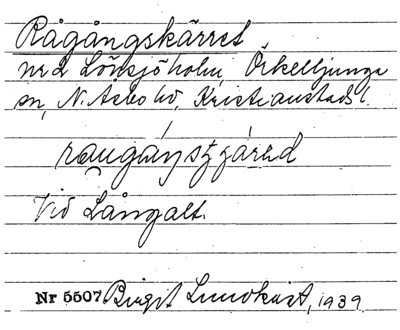 Rågångskärret
nr 2 Lönsjöholm, Örkelljunga
sn, N. Åsbo hd, Kristianstads l.
Vid Långalt.
Nr 5507 Birgit Lundkvist, 1939